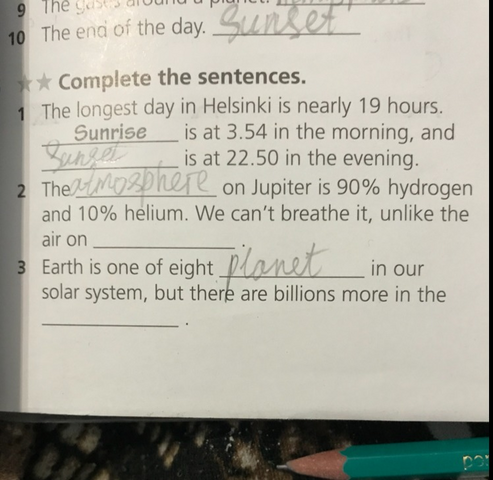 9 The gases around a planet.
10 The end of the day. Sunset
★★ Complete the sentences.
1 The longest day in Helsinki is nearly 19 hours.
Sunrise is at 3.54 in the morning, and
Sunset is at 22.50 in the evening.
2 The atmosphere on Jupiter is 90% hydrogen
and 10% helium. We can't breathe it, unlike the
air on ____________.
3 Earth is one of eight planet in our
solar system, but there are billions more in the
____________.